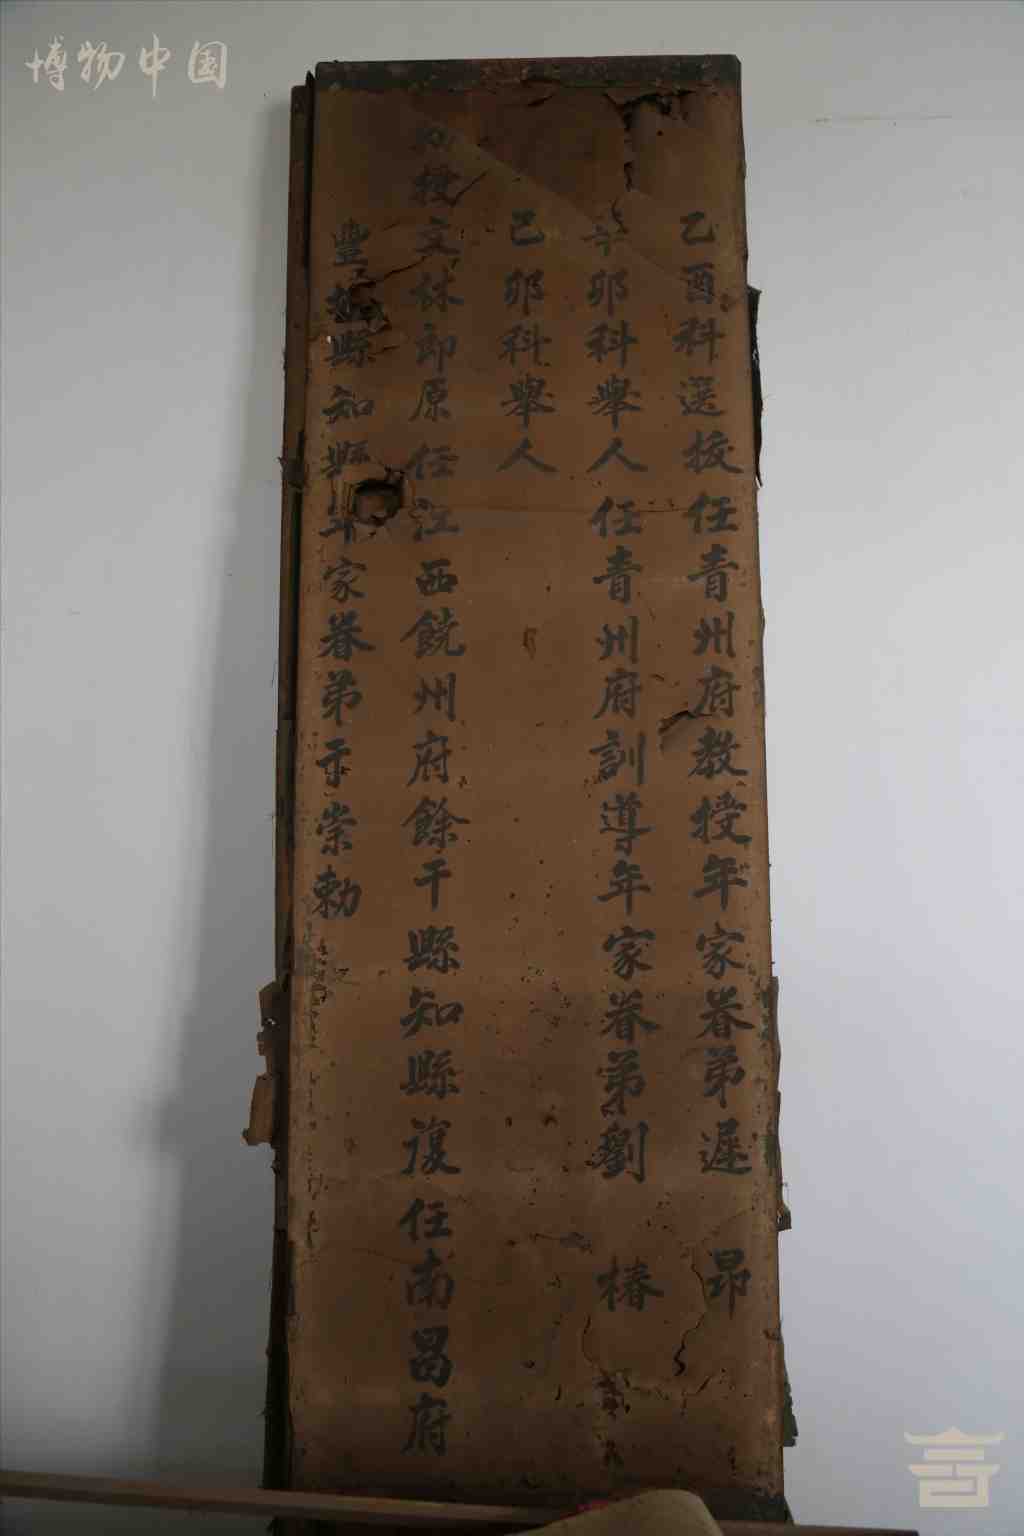 博物中国
乙酉科選拔任青州府教授年家眷弟遲昂
辛卯科舉人任青州府訓導年家眷弟劉椿
己卯科舉人
授文林郎原任江西饒州府餘干縣知縣復任南昌府
豐城縣知縣年家眷弟于崇勅